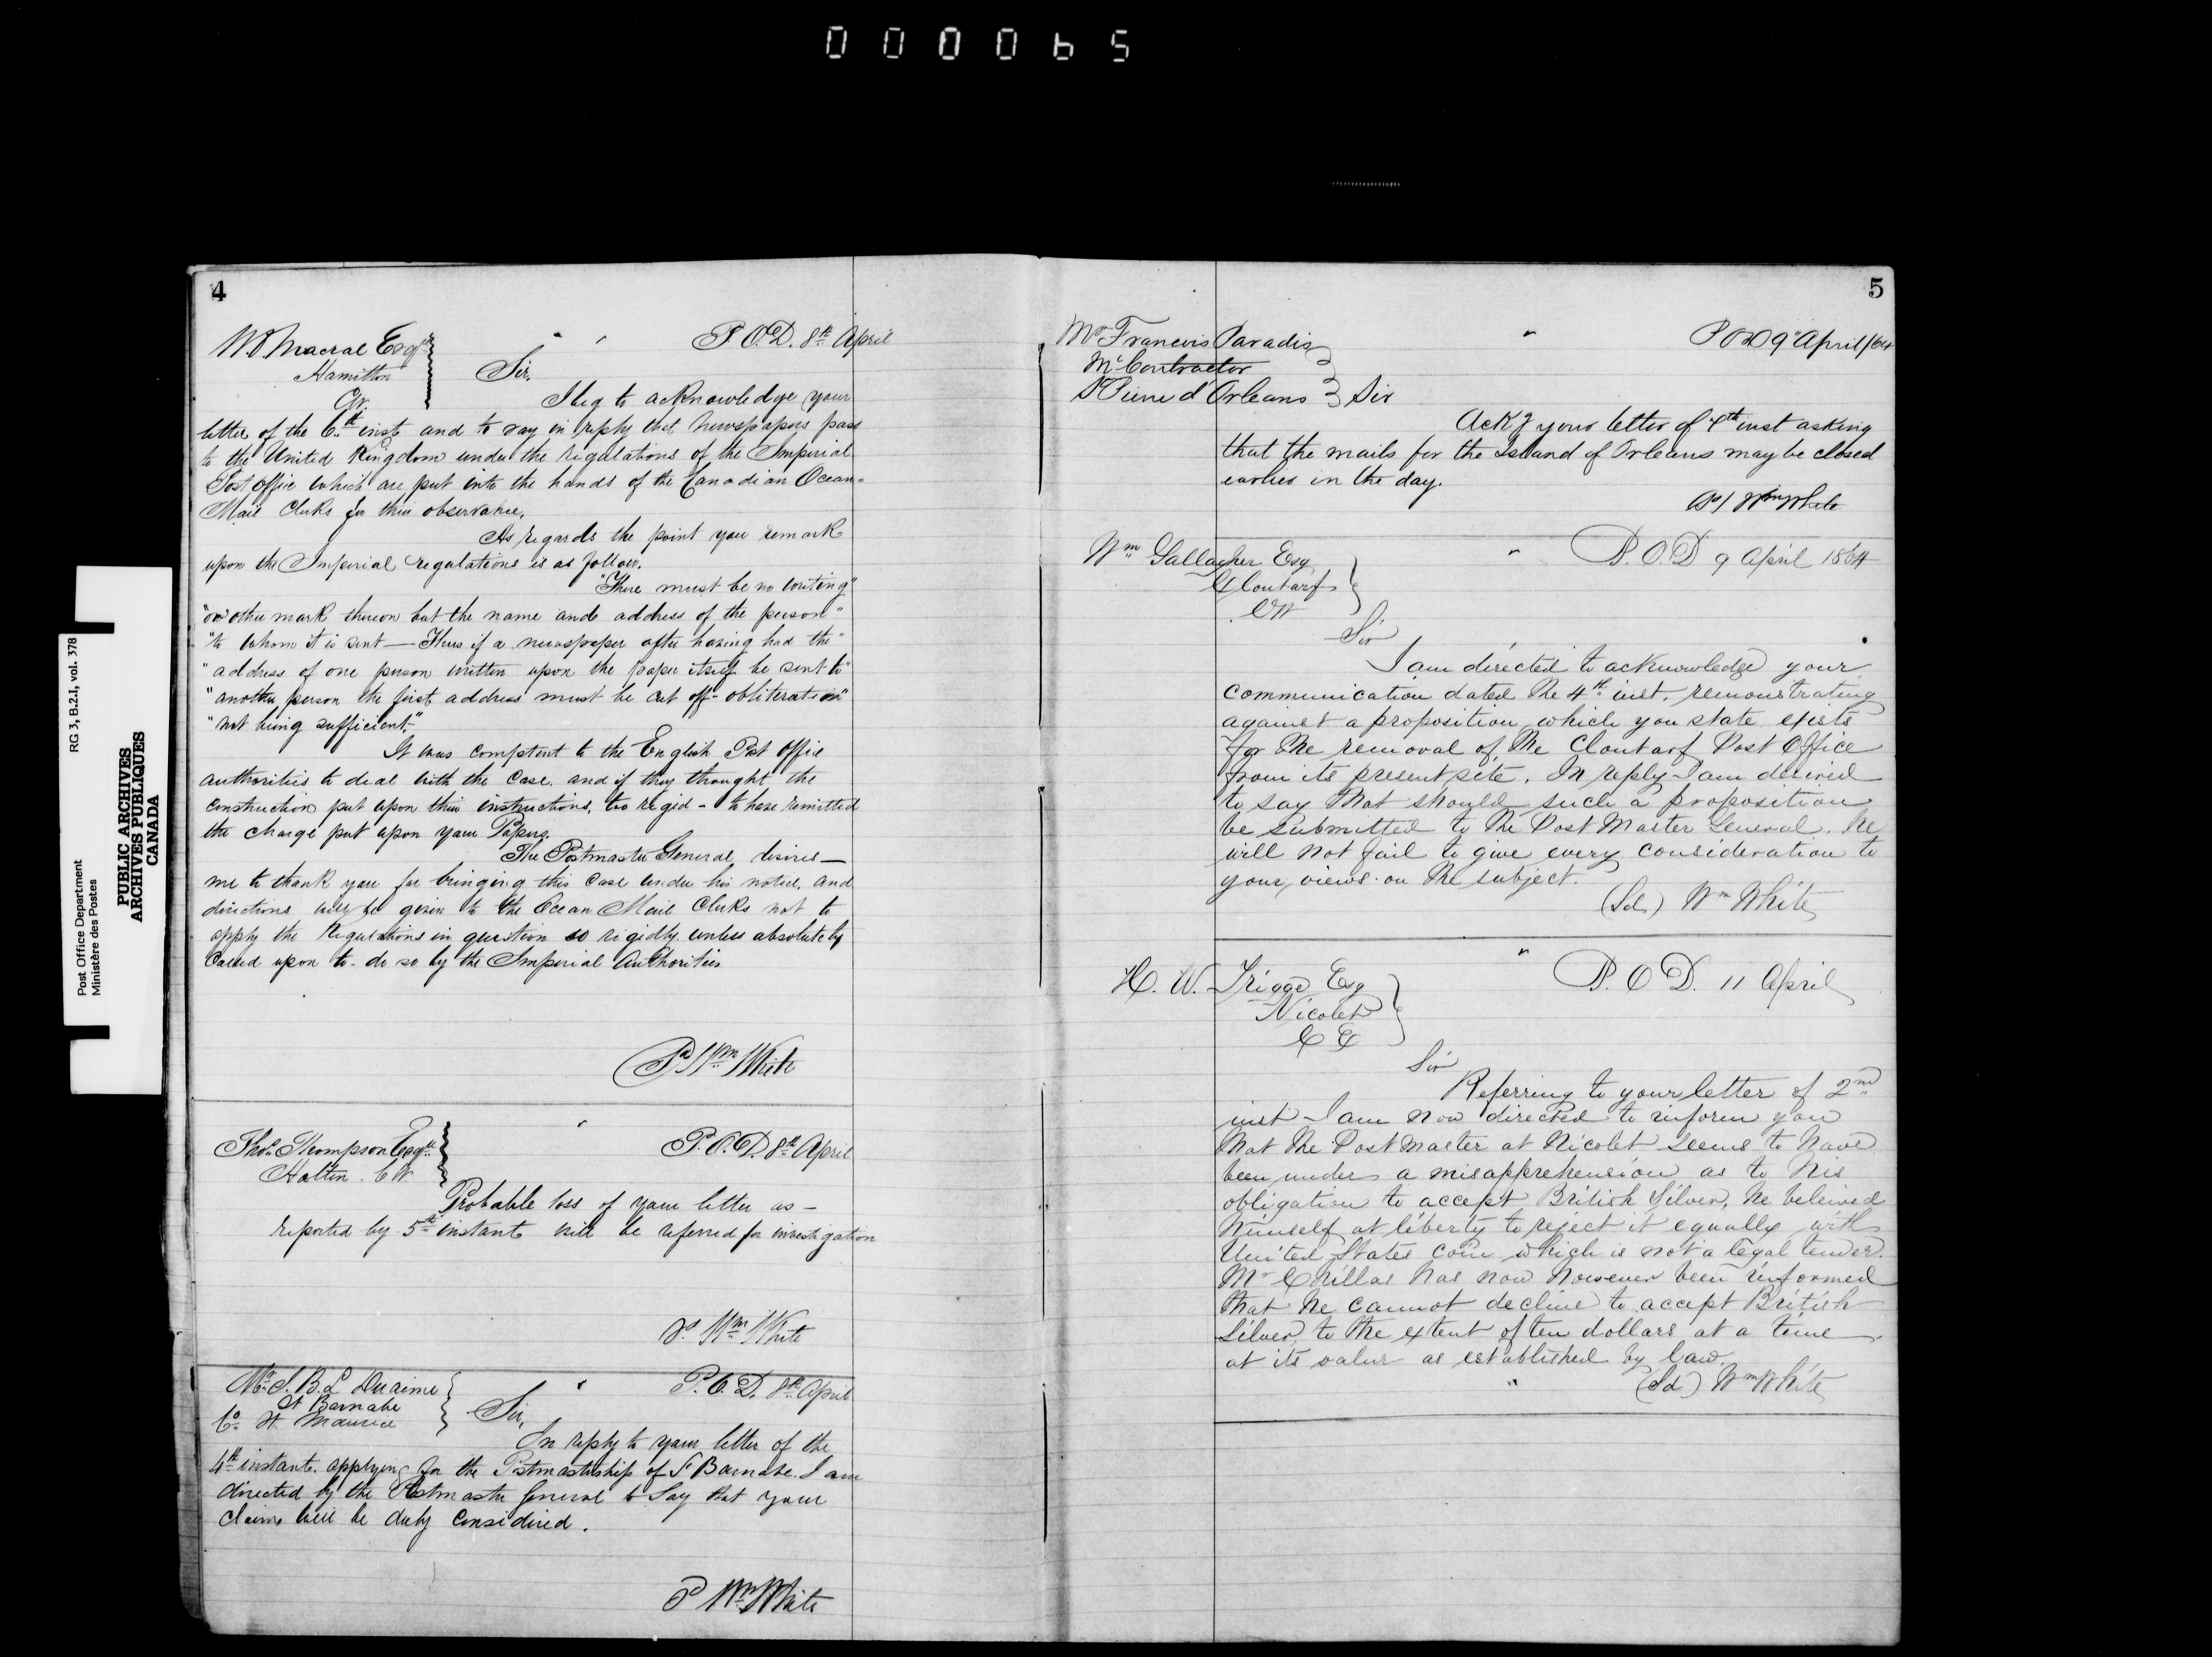 000065
RG 3, B.2.I, vol. 378
Post Office Department
Ministère des Postes
PUBLIC ARCHIVES
ARCHIVES PUBLIQUES
CANADA
4
P.O.D. 8th April
Macrae Esqre
Hamilton
Sir,
I beg to acknowledge your
letter of the 6th inst and to say in reply that Newspapers pass
to the United Kingdom under the regulations of the Imperial
Post Office which are put into the hands of the Canadian Ocean-
Mail Clerks for their observance.
As regards the point you remark
upon the Imperial regulations is as follow.
"There must be no writing"
"or other mark thereon but the name and address of the person"
"to whom it is sent — Thus if a newspaper after having had the"
"address of one person written upon the paper itself be sent to"
"another person the first address must be cut off - obliteration"
"not being sufficient."
It was competent to the English Post Office
authorities to deal with the case and if they thought the
construction put upon their instructions, too rigid - to have remitted
the charge put upon your Papers.
The Postmaster General desires —
me to thank you for bringing this case under his notice, and
directions will be given to the Ocean Mail Clerks not to
apply the Regulations in question so rigidly unless absolutely
called upon to do so by the Imperial Authorities
Wm White
P.O.D. 8th April
Thos. Thompson Esqre
C.W.
Probable loss of your letter as —
reported by 5th instant will be referred for investigation
Wm White
P.O.D. 8th April
B. L Duaime
St Barnabe
Co. St. Maurice
Sir,
In reply to your letter of the
4th instant. applying for the Postmastership of St Barnabe. I am
directed by the Postmaster General to say that your
claims will be duly considered.
Wm White
5
Mr Francois Paradis
Contractor
d'Orleans Sir
POD 9" April/64
Ackg your letter of 7th inst asking
that the mails for the Island of Orleans may be closed
earlier in the day.
Wm White
Wm Gallagher Esq
Clontarf
CW
P.O.D 9 April 1864
Sir
I am directed to acknowledge your
communication dated the 4th inst. remonstrating
against a proposition which you state exists
for the removal of the Clontarf Post Office
from its present site. In reply I am desired
to say that should such a proposition
be submitted to the Post Master General. he
will not fail to give every consideration to
your views on the subject.
(Sd) Wm White
H. W. Trigge Esq
Nicolet
C E
P.O.D. 11 April
Sir
Referring to your letter of 2nd
inst I am now directed to inform you
that the Postmaster at Nicolet seems to have
been under a misapprehension as to his
obligation to accept British Silver, he beleived
himself at liberty to reject it equally with
United States coin which is not a legal tender.
Mr Chillas has now however been informed
that he cannot decline to accept British
Silver to the extent of ten dollars at a time
at its value as established by law.
(Sd) Wm White